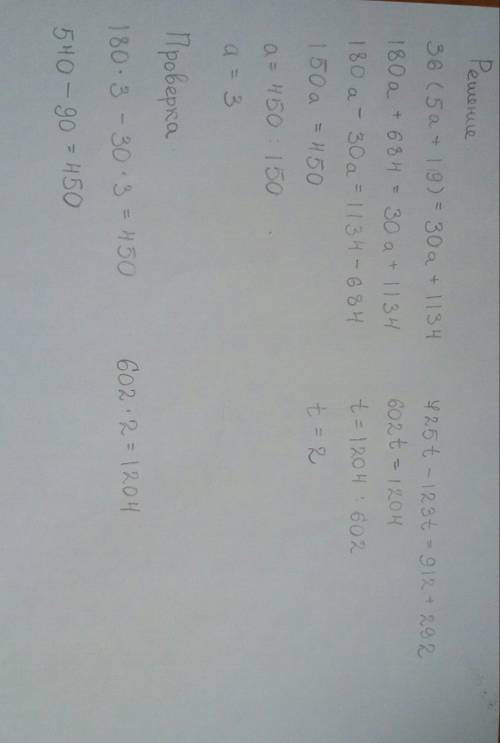 Решение
36(5a + 19) = 30a + 1134
180a + 684 = 30a + 1134
180a - 30a = 1134 - 684
150a = 450
a = 450 : 150
a = 3
Проверка
180 · 3 - 30 · 3 = 450
540 - 90 = 450
725t - 123t = 912 + 292
602t = 1204
t = 1204 : 602
t = 2
602 · 2 = 1204